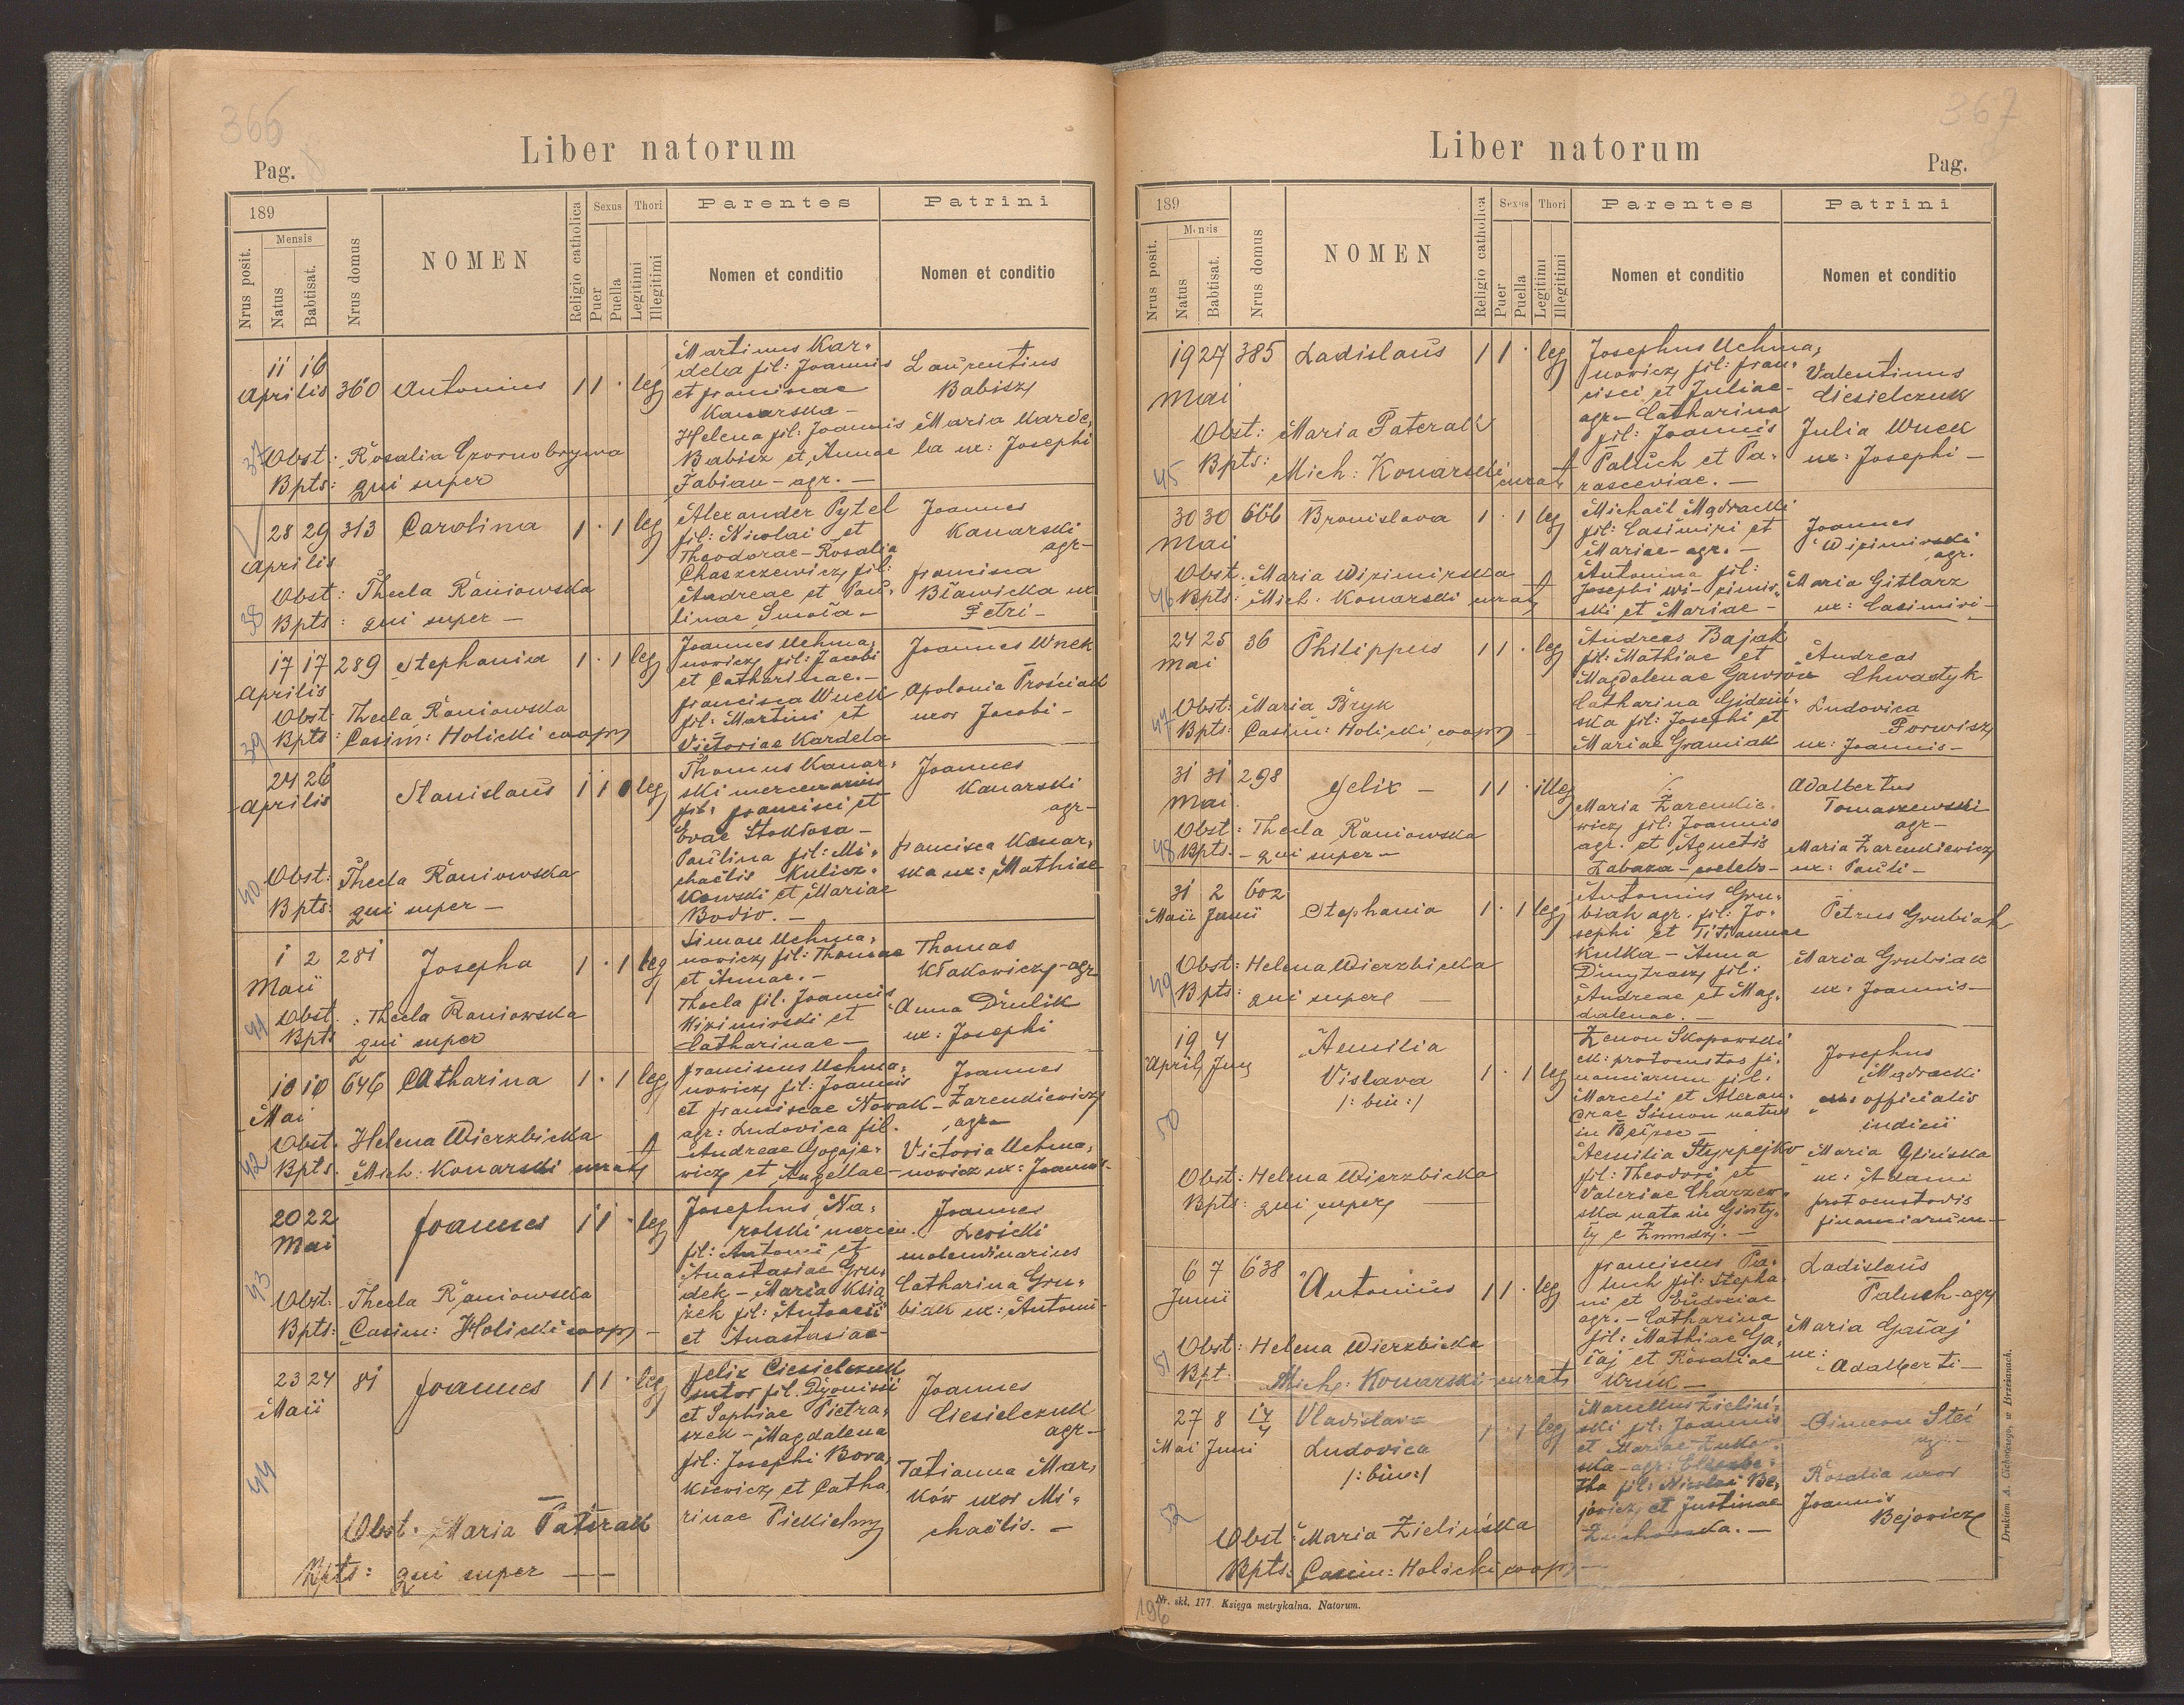 366
Liber natorum
Pag.
189
Mensis
Nrus posit.
Natus
Babtisat.
Nrus domus
NOMEN
Religio catholica
Sexus
Puer
Puella
Thori
Legitimi
Illegitimi
Parentes
Nomen et conditio
Patrini
Nomen et conditio
11 16
Aprilis 360 Antonius 1 1 . leg
Martinus Kar-
dela fil: Joannis
et Franciscae
Kanarska -
Helena fil: Joannis
Babisz et Annae
Fabian - agr. -
Laurentius
Babisz
Maria Karde,
la ux: Josephi
37 Obst: Rosalia Czornobrywa
Bpts: qui super
28 29 313 Carolina 1 . 1 leg
Aprilis
Alexander Pytel
fil: Nicolai et
Theodorae - Rosalia
Chaszczewicz fil:
Andreae et Pau-
linae Smoła -
Joannes
Kanarski
agr-
Francisca
Bławicka ux
Petri -
38 Obst: Thecla Raniowska
Bpts: qui super -
17 17 289 Stephania 1 . 1 leg
Aprilis
Joannes Uchma,
nowicz fil: Jacobi
et Catharinae. -
Francisca Wnek
fil: Martini et
Victoriae Kardela
Joannes Wnek
Apolonia Prościak
uxor Jacobi -
39 Obst: Thecla Raniowska
Bpts: Casim: Holicki coop
24 26
Aprilis Stanislaus 1 1 0 leg
Thomas Kanar-
ski mercenarius
fil: Francisci et
Evae Stokłosa -
Paulina fil: Mi-
chaelis Kulicz-
kowski et Mariae
Bodio. -
Joannes
Kanarski
agr-
Francisca Kanar,
ska ux: Mathiae
40 Obst: Thecla Raniowska
Bpts: qui super -
1 2 281 Josepha 1 . 1 leg
Maii
Simon Uchma,
nowicz fil: Thomae
et Annae. -
Thecla fil: Joannis
Wizimirski et
Catharinae -
Thomas
Kłakowicz - agr
Anna Drulik
ux: Josephi
41 Obst: Thecla Raniowska
Bpts qui super
10 10 646 Catharina 1 . 1 leg
Mai
Franciscus Uchma-
nowicz fil: Joannis
et Franciscae Nowak -
agr: Ludovica fil.
Andreae Gogoje-
wicz et Angellae -
Joannes
Zarenkiewicz
agr-
Victoria Uchma,
nowicz ux: Joannis -
42 Obst. Helena Wierzbicka
Bpts. Mich. Konarski curat
20 22
Mai Joannes 1 1 . leg
Josephus Na-
rolski mercen.
fil: Antonii et
Anastasiae Gru-
dek - Maria Ksią
żek fil: Antonii
et Anastasiae -
Joannes
Lewicki
molendinarius
Catharina Gru-
biak ux: Antoni -
43 Obst: Thecla Raniowska
Bpts: Casim: Holicki coop -
23 24 81 Joannes 1 1 . leg
Maii
Felix Ciesielczuk
sutor fil. Dyonisii
et Sophiae Pietra,
szek - Magdalena
fil: Josephi Bora,
kiewicz et Catha,
rinae Piekielny
Joannes
Ciesielczuk
agr-
Tatianna Mar,
ków uxor Mi-
chaëlis. -
44
Obst. Maria Paterak
Bpts: qui super -
367
Liber natorum
Pag.
189
Mensis
Nrus posit.
Natus
Babtisat.
Nrus domus
NOMEN
Religio catholica
Sexus
Puer
Puella
Thori
Legitimi
Illegitimi
Parentes
Nomen et conditio
Patrini
Nomen et conditio
19 27 385 Ladislaus 1 1 . leg
Mai
Josephus Uchma,
nowicz fil: Fran-
cisci et Juliae -
agr - Catharina
fil: Joannis
Paluch et Pa-
rasceviae. -
Valentinus
Ciesielczuk
Julia Wnek
ux: Josephi -
Obst: Maria Paterak
45 Bpts: Mich: Konarski curat
30 30 666 Bronislava 1 . 1 leg
Mai
Michaël Mądracki
fil: Casimiri et
Mariae - agr. -
Antonina fil:
Josephi Wi-zimir-
ski et Mariae -
Joannes
Wizimirski
agr.
Maria Gitlarz
ux: Casimiri -
Obst: Maria Wizimirska
46 Bpts: Mich: Konarski curat
24 25 36 Philippus 1 1 . leg
Mai
Andreas Bajak
fil: Mathiae et
Magdalenae Gawron
Catharina Gidziń-
ska fil: Josephi et
Mariae Graniak
Andreas
Chwastyk
Ludovica
Porwisz
ux: Joannis -
47 Obst: Maria Bryk
Bpts: Casim: Holicki coop -
31 31 298 Felix - 1 1 . illeg
Mai
Maria Zarenkie-
wicz fil: Joannis
agr. et Agnetis
Łabaza - coelebs -
Adalbertus
Tomaszewski
agr-
Maria Zarenkiewicz
ux: Pauli -
Obst: Thecla Raniowska
48 Bpts. - qui super -
31 2 602
Maii Junii Stephania 1 . 1 leg
Antonius Gru-
biak agr. fil: Jo-
sephi et Titiannae
Kulka - Anna
Dmytrasz fil:
Andreae et Mag-
dalenae. -
Petrus Grubiak
Maria Grubiak
ux: Joannis -
49 Obst: Helena Wierzbicka
Bpts: qui super -
19 4 Aemilia
April Jun Vislava 1 . 1 leg
/: bin :/
Zenon Skopowski
fil:
Marceli et Alexan-
drae Simon natus
in -
Aemilia
fil: Theodori et
Valeriae Charzew-
ska nata in
Josephus
Mądracki
officialis
iudicii
Maria Glińska
ux: Adami
financiarum -
50
Obst: Helena Wierzbicka
Bpts: qui super
6 7 638 Antonius 1 1 . leg
Junii
Franciscus Pa-
luch fil: Stepha-
ni et Eudociae
agr. - Catharina
fil: Mathiae Ga,
łaj et Rosaliae
Kruk -
Ladislaus
Paluch - agr
Maria Gałaj
ux:
Adalberti -
51 Obst: Helena Wierzbicka
Bpt. Mich: Konarski - curat
27 8 14/4 Vladislava 1 . 1 leg
Mai Juni Ludovica
/: bin :/
Marcellus Zieliń-
ski fil: Joannis
et Mariae Żukow-
ska - agr: Elisabe-
tha fil: Nicolai Be,
jowicz et Justinae
Żuchowska. -
Simeon Steć
agr. -
Rosalia uxor
Joannis
Bejowicz
52
Obst: Maria Zielińska
Bpts: Casim: Holicki coop -
Nr. skł. 177. Księga metrykalna. Natorum.
196
Drukiem A. Cichockiego, w Brzeżanach.